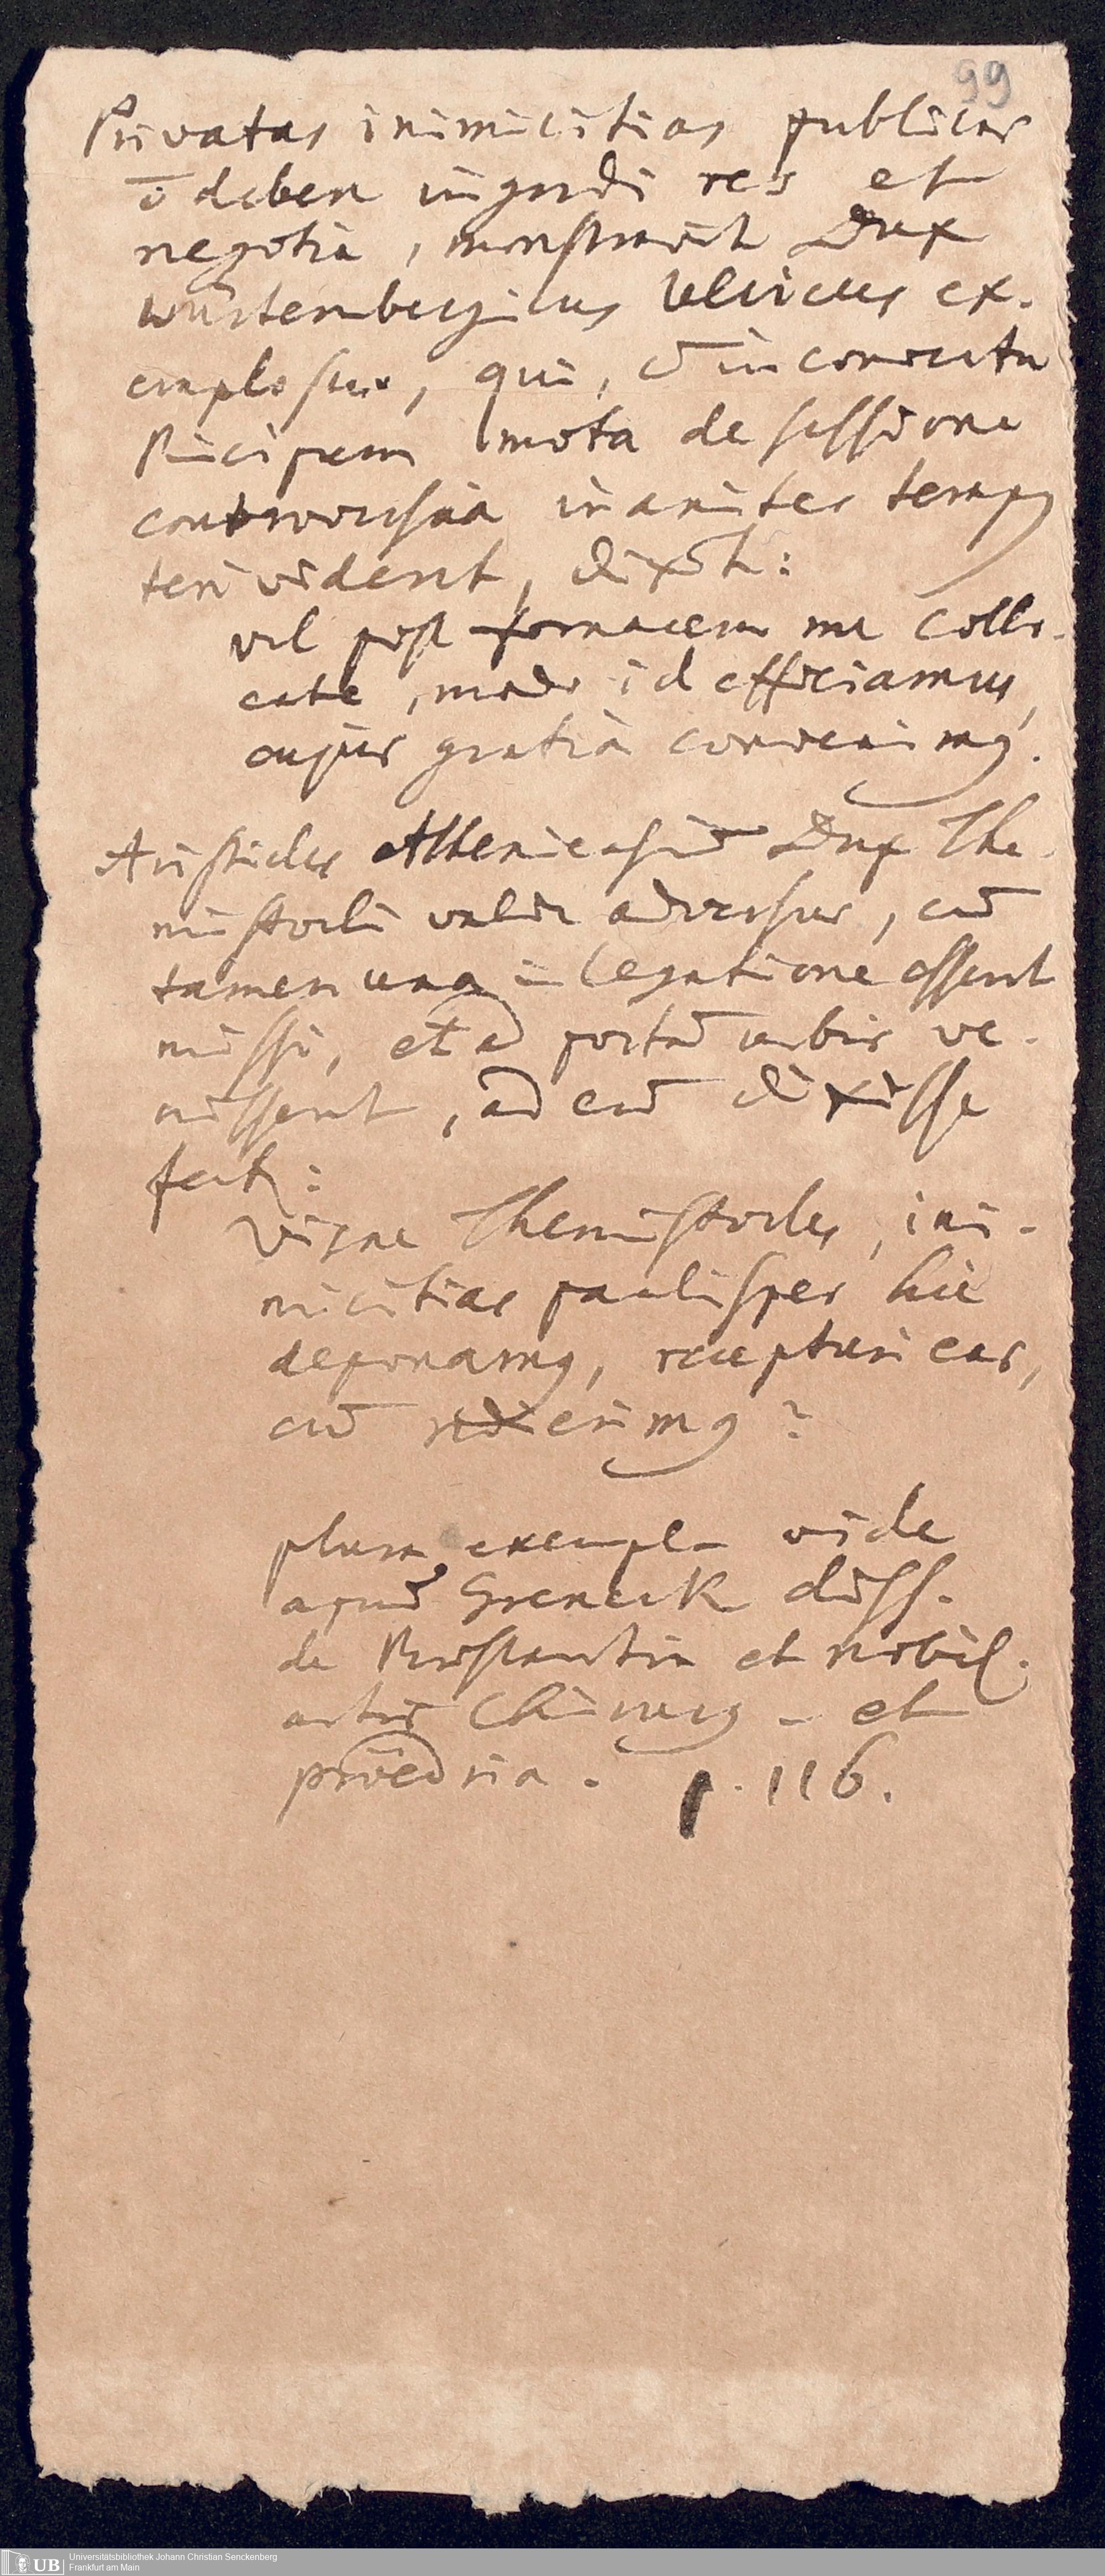 99
Privatas inimicitias publicas
ō deben ingredi res et
negotia, monstravit Dux
Würtembergicus Ulricus ex-
emplo suo, qui, cū in conventu
Principum mota de sessione
controversia inaniter temp9
teri videret, dixit:
vel post fornacem me collo-
cate, modo id efficiamus,
cujus gratia convenim9.
Aristides Atheniensiū Dux The-
mistocli valde adversus, cū
tamen una in legatione essent
missi, et ad portā urbis ve-
nissent, ad eū dixisse
fert:
Visne Themistocles, ini-
micitias paulisper hic
deponam9, recepturi eas,
cū redierim9?
plura exempla vide
apud diss.
de Praestantia et nobil.
artis Chirurg - et
proëdria. p. 116.
UB Universitätsbibliothek Johann Christian Senckenberg
Frankfurt am Main